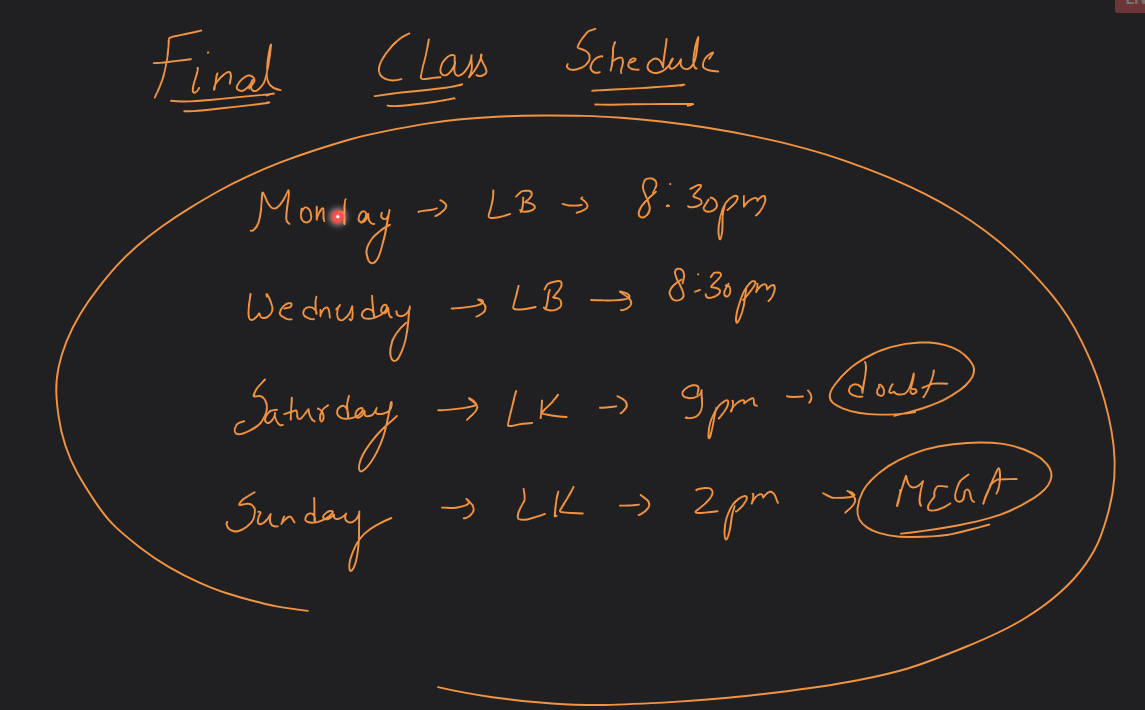 Final CLass Schedule
Monday → LB → 8:30pm
Wednesday → LB → 8:30pm
Saturday → LK → 9pm → doubt
Sunday → LK → 2pm → MEGA